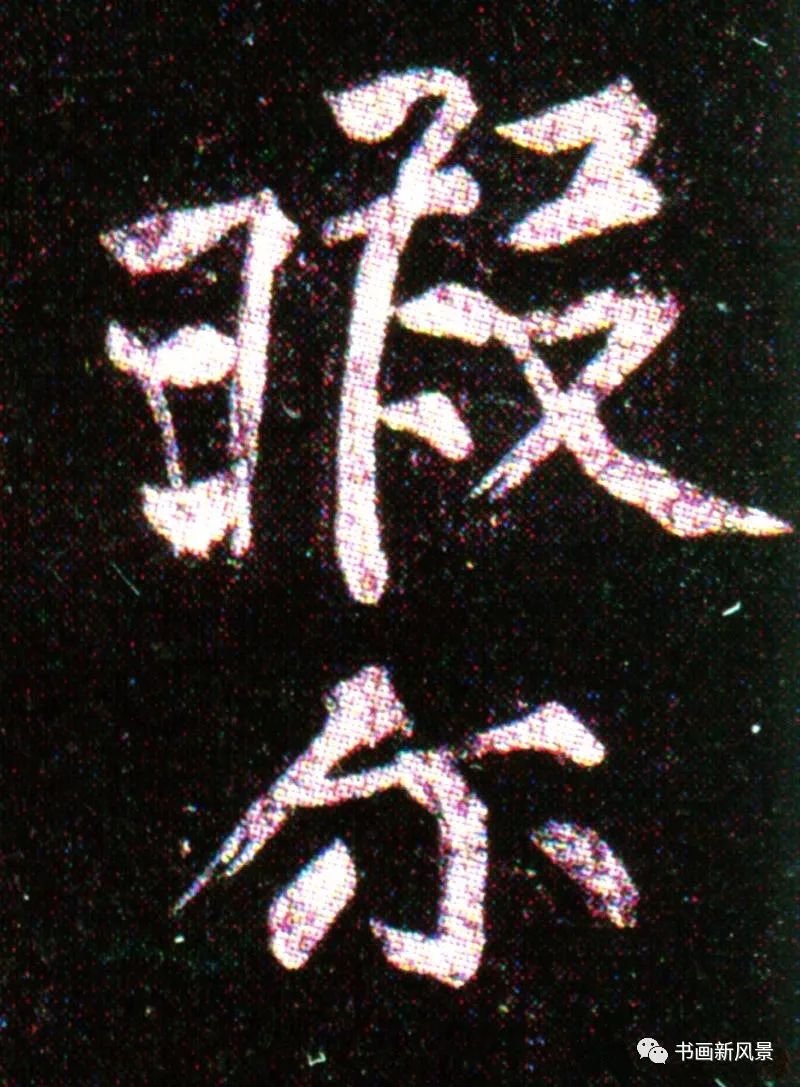 暇尔
书画新风景